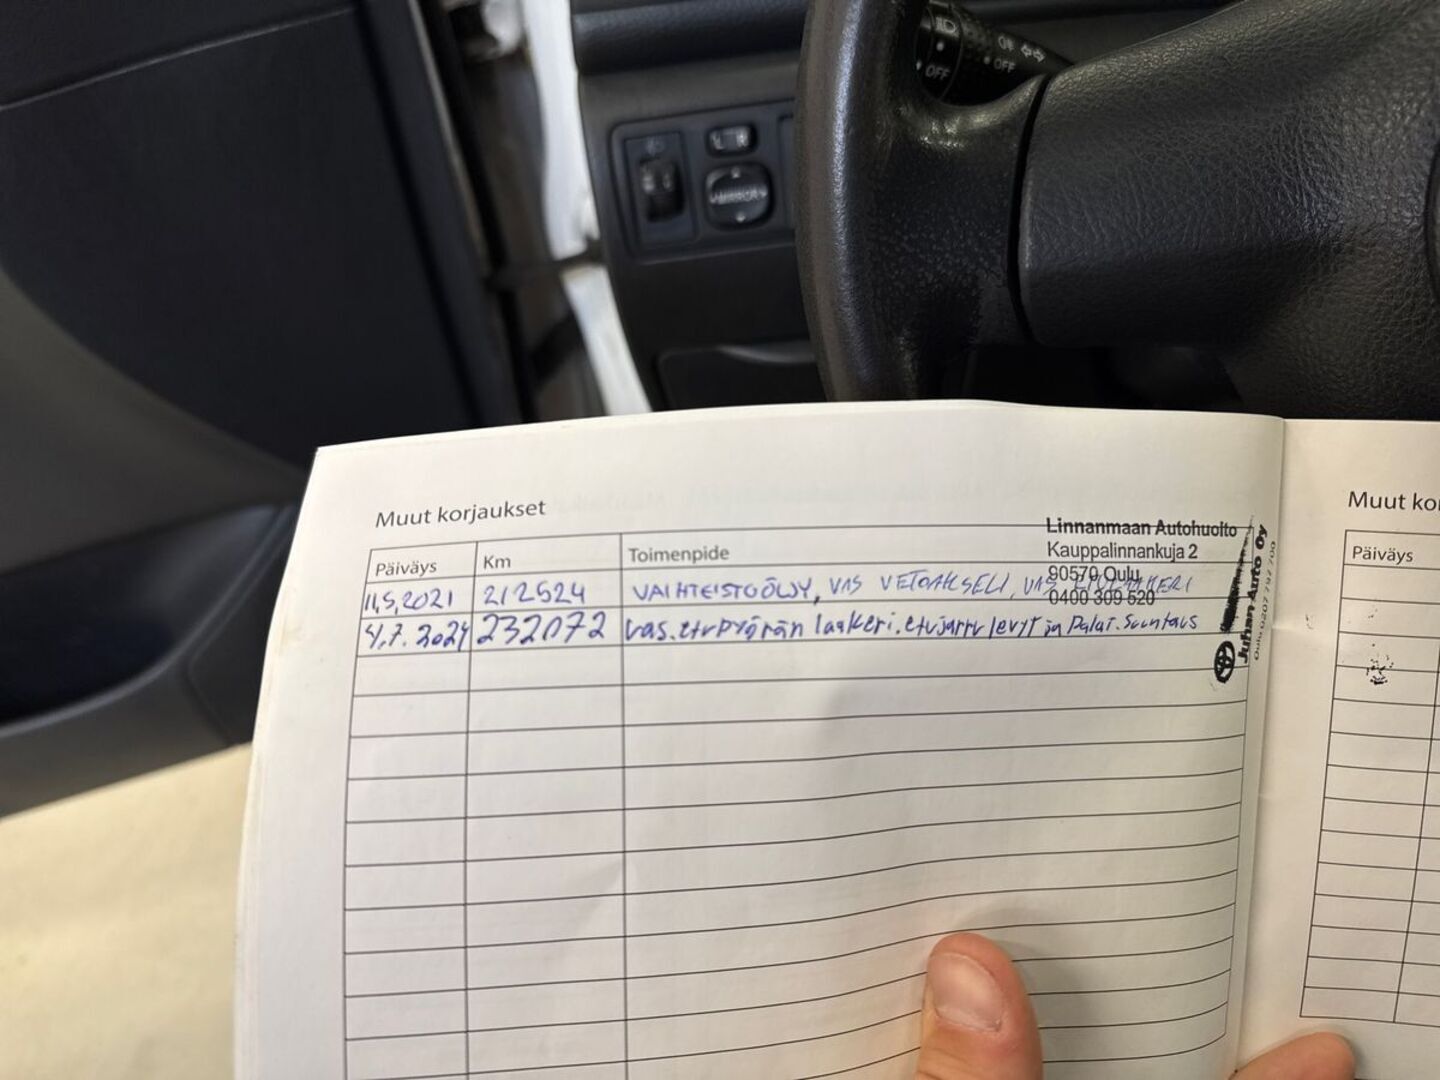 OFF
OFF
MIRROR
Muut korjaukset
Päiväys Km Toimenpide
Linnanmaan Autohuolto
Kauppalinnankuja 2
90570 Oulu
0400 309 520
11.5.2021 212524 VAIHTEISTOÖLJY, VAS VETOAKSELI, VAS
4.7.2024 232072 Vas.etupyörän laakeri.etujarru levyt ja Palat.Suuntaus
Juhan Auto Oy
Oulu 0207 792 700
Muut ko
Päiväys